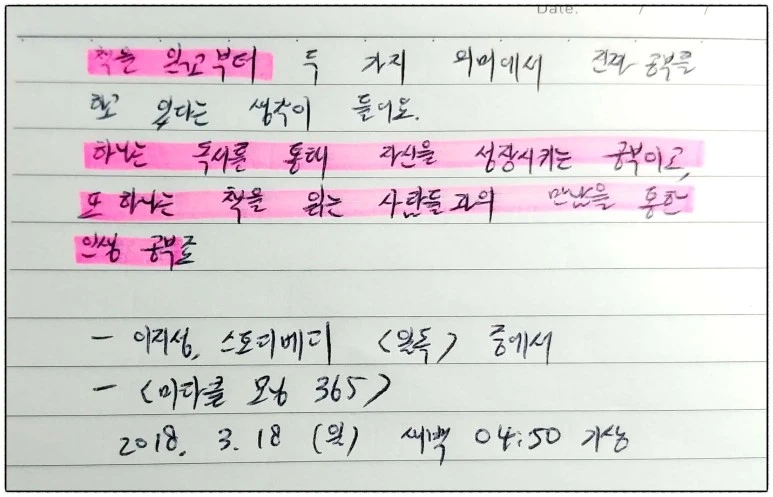 Date: / /
책을 읽고부터 두 가지 의미에서 진짜 공부를
하고 있다는 생각이 들어요.
하나는 독서를 통해 자신을 성장시키는 공부이고,
또 하나는 책을 읽는 사람들과의 만남을 통한
인생 공부죠
- 이지성, 스토리베리 <일독> 중에서
- <미라클 모닝 365>
2018. 3. 18 (일) 새벽 04:50 기상